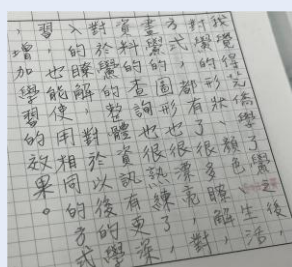 我覺得芫儒學了鱟之後，
對鱟的形狀、顏色、生活
方式都有了很多瞭解，對
鱟的圖形也很漂亮，對
資料的查詢也很熟練了，
對於鱟的整體資訊有更深
入的瞭解，對於以後的學
習，也能使用相同的方式
，增加學習的效果。